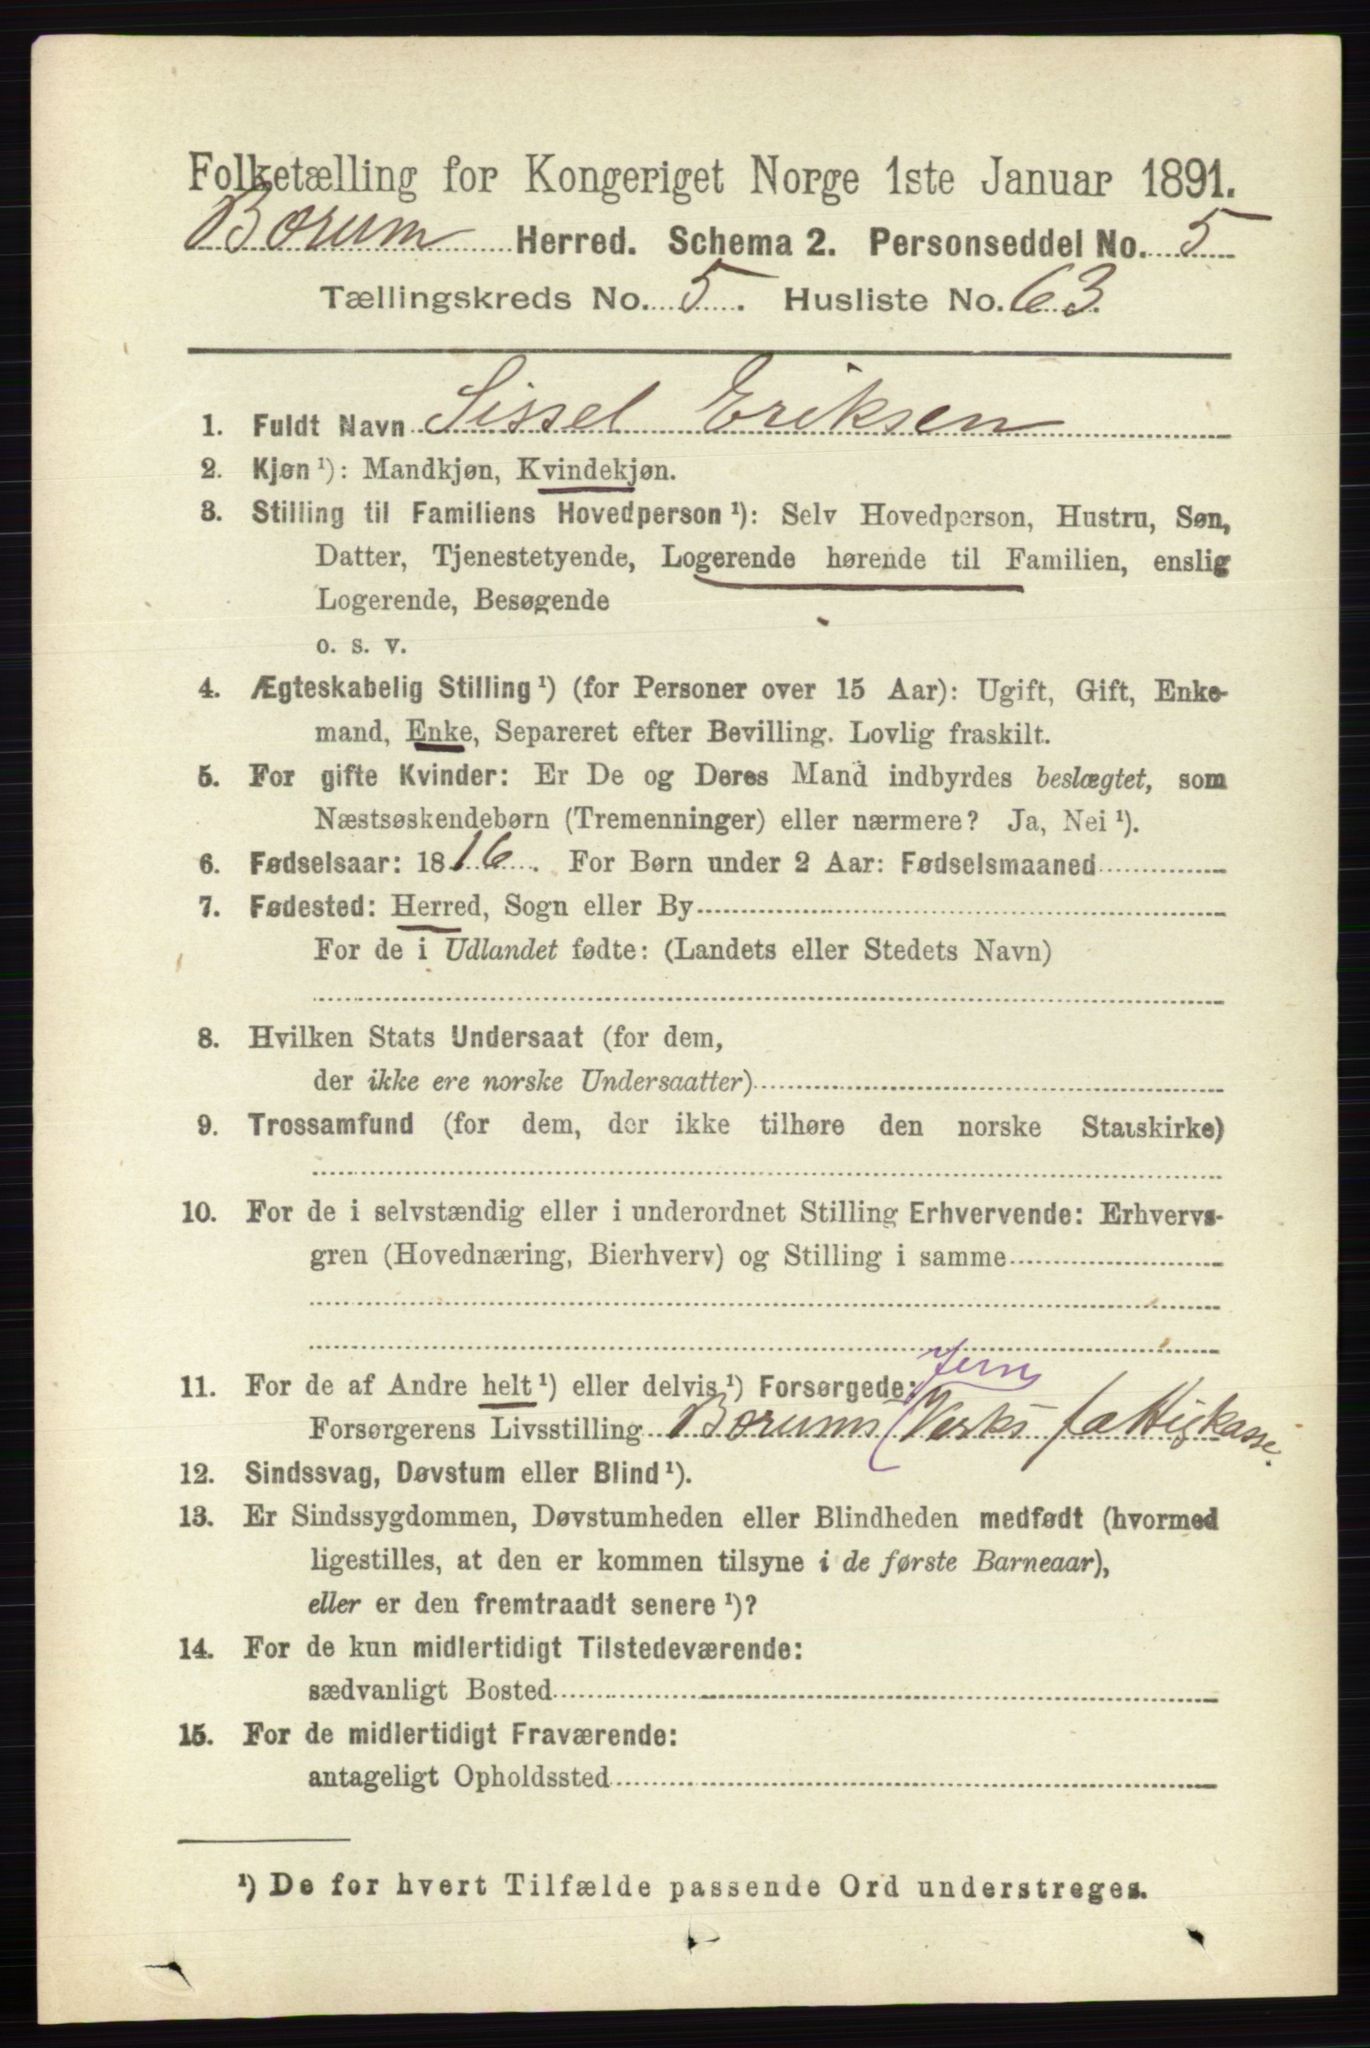 Folketælling for Kongeriget Norge 1ste Januar 1891.
Bærum Herred. Schema 2. Personseddel No. 5
Tællingskreds No. 5. Husliste No. 63.
1. Fuldt Navn Sissel Eriksen
2. Kjøn ¹): Mandkjøn, Kvindekjøn.
3. Stilling til Familiens Hovedperson ¹): Selv Hovedperson, Hustru, Søn,
Datter, Tjenestetyende, Logerende hørende til Familien, enslig
Logerende, Besøgende
o. s. v.
4. Ægteskabelig Stilling ¹) (for Personer over 15 Aar): Ugift, Gift, Enke-
mand, Enke, Separeret efter Bevilling. Lovlig fraskilt.
5. For gifte Kvinder: Er De og Deres Mand indbyrdes beslægtet, som
Næstsøskendebørn (Tremenninger) eller nærmere? Ja, Nei ¹).
6. Fødselsaar: 1816. For Børn under 2 Aar: Fødselsmaaned
7. Fødested: Herred, Sogn eller By
For de i Udlandet fødte: (Landets eller Stedets Navn)
8. Hvilken Stats Undersaat (for dem,
der ikke ere norske Undersaatter)
9. Trossamfund (for dem, der ikke tilhøre den norske Statskirke)
10. For de i selvstændig eller i underordnet Stilling Erhvervende: Erhvervs-
gren (Hovednæring, Bierhverv) og Stilling i samme
Jern
11. For de af Andre helt ¹) eller delvis ¹) Forsørgede:
Forsørgerens Livsstilling Bærums (Verks fattigkasse.
12. Sindssvag, Døvstum eller Blind ¹).
13. Er Sindssygdommen, Døvstumheden eller Blindheden medfødt (hvormed
ligestilles, at den er kommen tilsyne i de første Barneaar),
eller er den fremtraadt senere ¹)?
14. For de kun midlertidigt Tilstedeværende:
sædvanligt Bosted
15. For de midlertidigt Fraværende:
antageligt Opholdssted
¹) De for hvert Tilfælde passende Ord understreges.